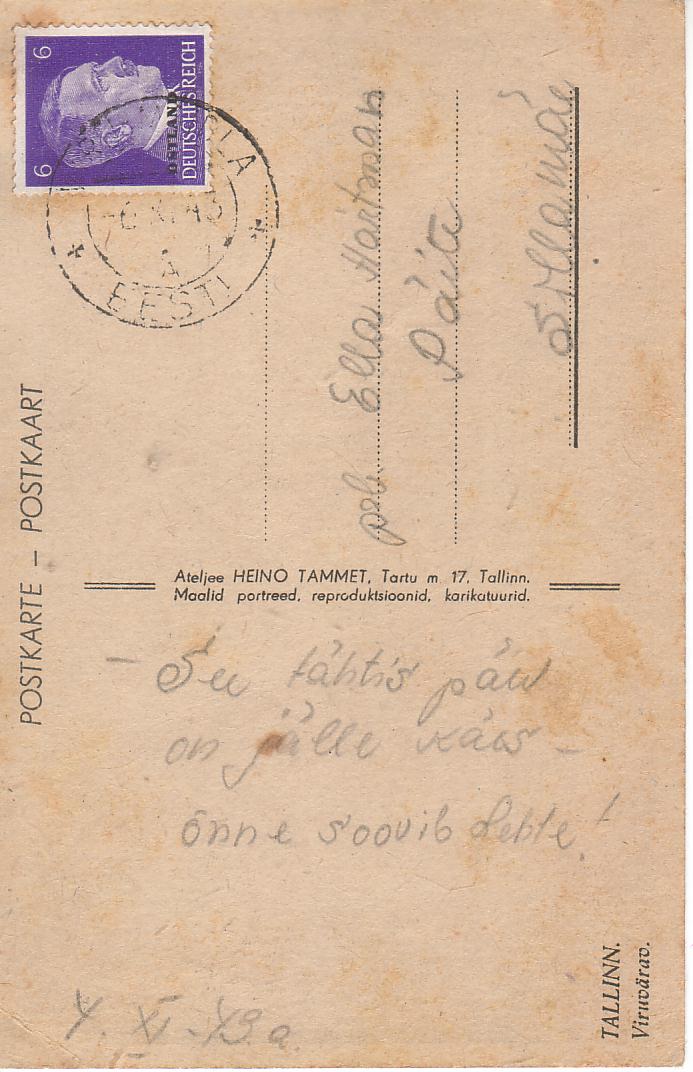 POSTKARTE – POSTKAART
6 6
DEUTSCHES REICH
OSTLAND
EESTI
A
prl. Ella Hartman
Päite
Sillamäe
Ateljee HEINO TAMMET, Tartu m 17, Tallinn.
Maalid portreed, reproduktsioonid, karikatuurid.
– Su tähtis päev
on jälle käes –
õnne soovib Lehte!
4. XI -43. a.
TALLINN.
Viruvärav.